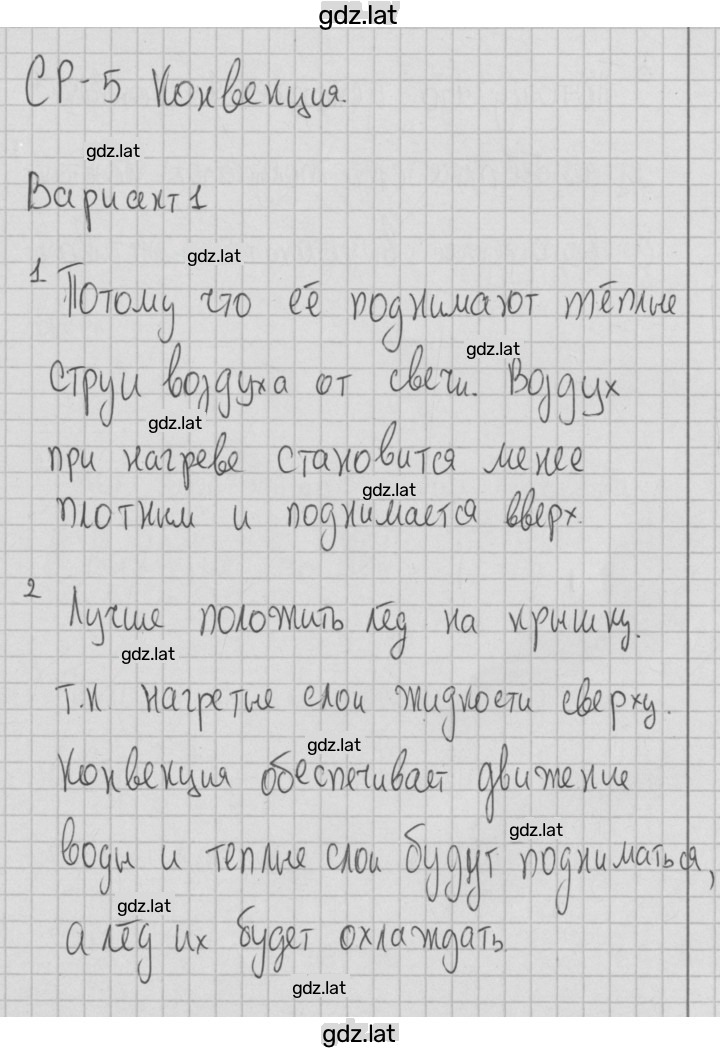 gdz.lat
СР-5 Конвекция.
gdz.lat
Вариант 1
gdz.lat
1 Потому что её поднимают тёплые
gdz.lat
струи воздуха от свечи. Воздух
gdz.lat
при нагреве становится менее
gdz.lat
плотным и поднимается вверх.
2 Лучше положить лёд на крышку.
gdz.lat
т.к нагретые слои жидкости сверху.
gdz.lat
Конвекция обеспечивает движение
gdz.lat
воды и теплые слои будут подниматься,
gdz.lat
а лёд их будет охлаждать.
gdz.lat
gdz.lat